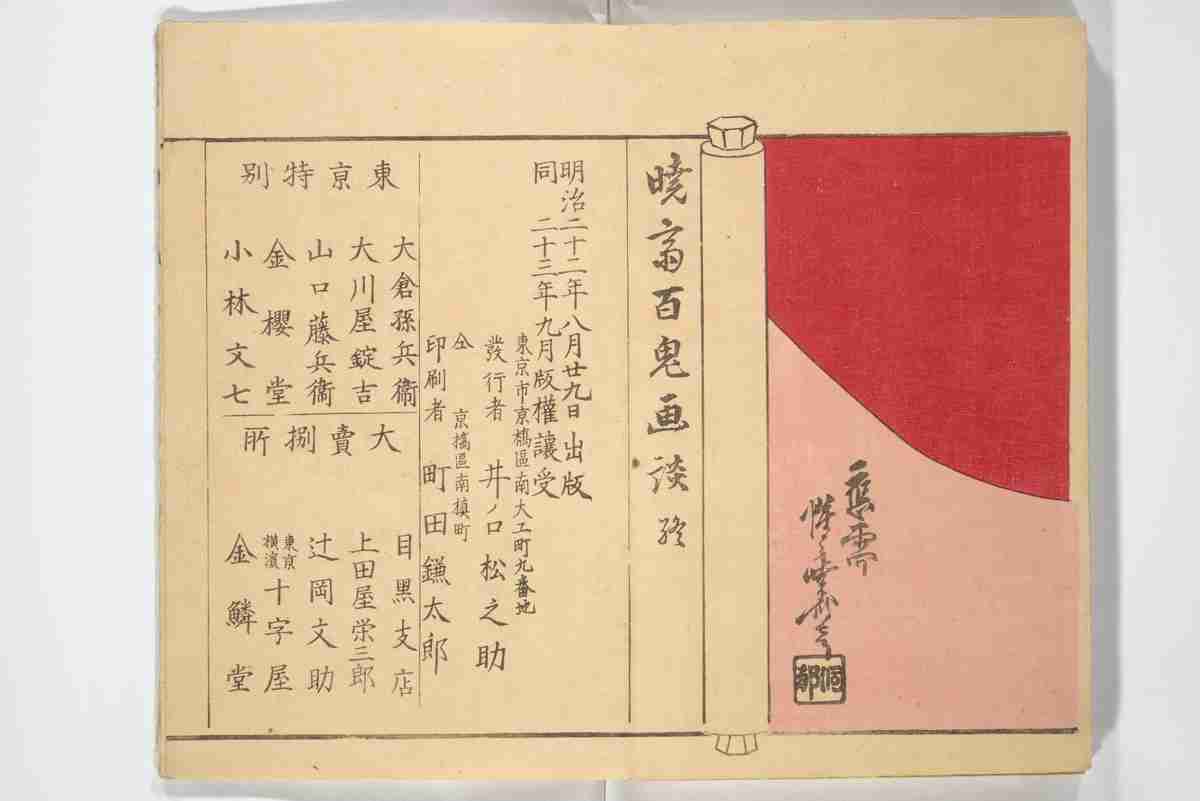 應需
惺々暁斎
洞郁
曉斎百鬼画談 終
明治二十二年八月廿九日出版
同二十三年九月版權讓受
東京市京橋區南大工町九番地
發行者 井ノ口松之助
仝 京橋區南槙町
印刷者 町田鎌太郎
東京特別
大倉孫兵衞
大川屋錠吉
山口藤兵衞
金櫻堂
小林文七
大賣捌所
目黒支店
上田屋栄三郎
辻岡文助
東京横濱十字屋
金鱗堂